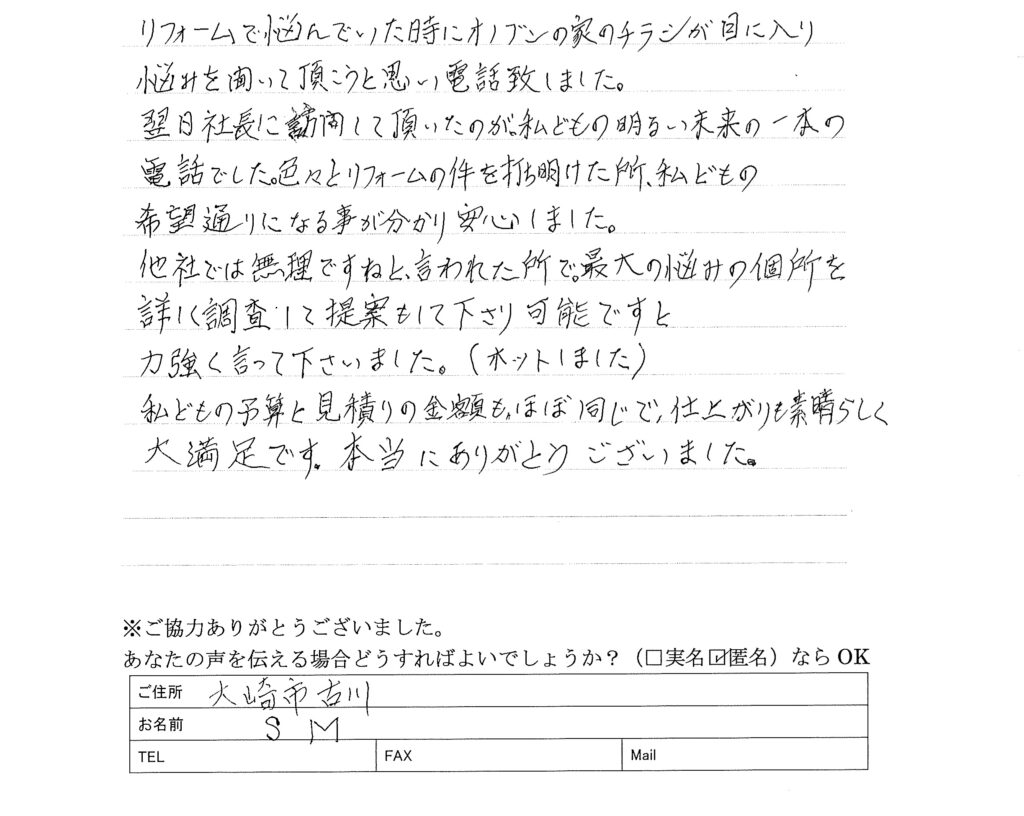 リフォームで悩んでいた時にオノブンの家のチラシが目に入り
悩みを聞いて頂こうと思い電話致しました。
翌日社長に訪問して頂いたのが、私どもの明るい未来の一本の
電話でした。色々とリフォームの件を打ち明けた所、私どもの
希望通りになる事が分かり安心しました。
他社では無理ですねと、言われた所で。最大の悩みの個所を
詳しく調査して提案もして下さり可能ですと
力強く言って下さいました。(ホットしました)
私どもの予算と見積りの金額も、ほぼ同じで、仕上がりも素晴らしく
大満足です。本当にありがとうございました。
※ご協力ありがとうございました。
あなたの声を伝える場合どうすればよいでしょうか？（□実名☑匿名）なら OK
ご住所 大崎市古川
お名前 S M
TEL FAX Mail